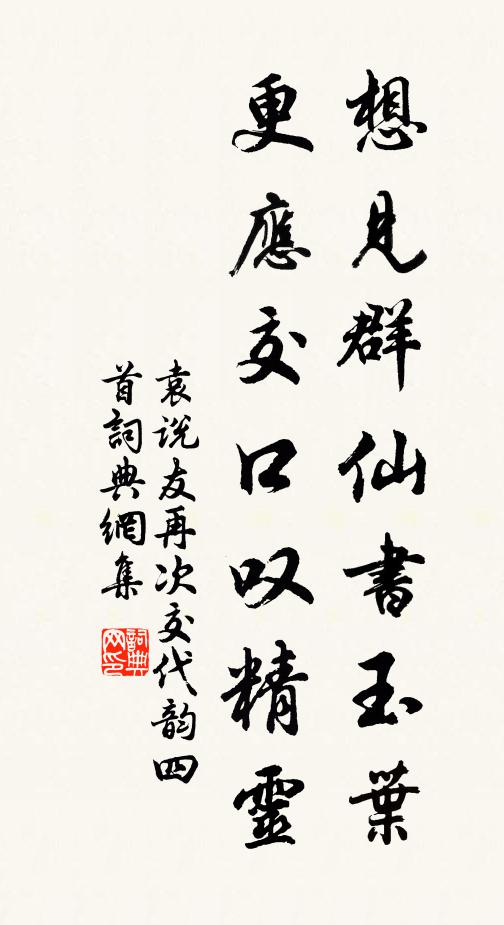 想見群仙書玉葉
更應交口叹精靈
袁说友再次交代韵四
首詞典網集
詞典
网印